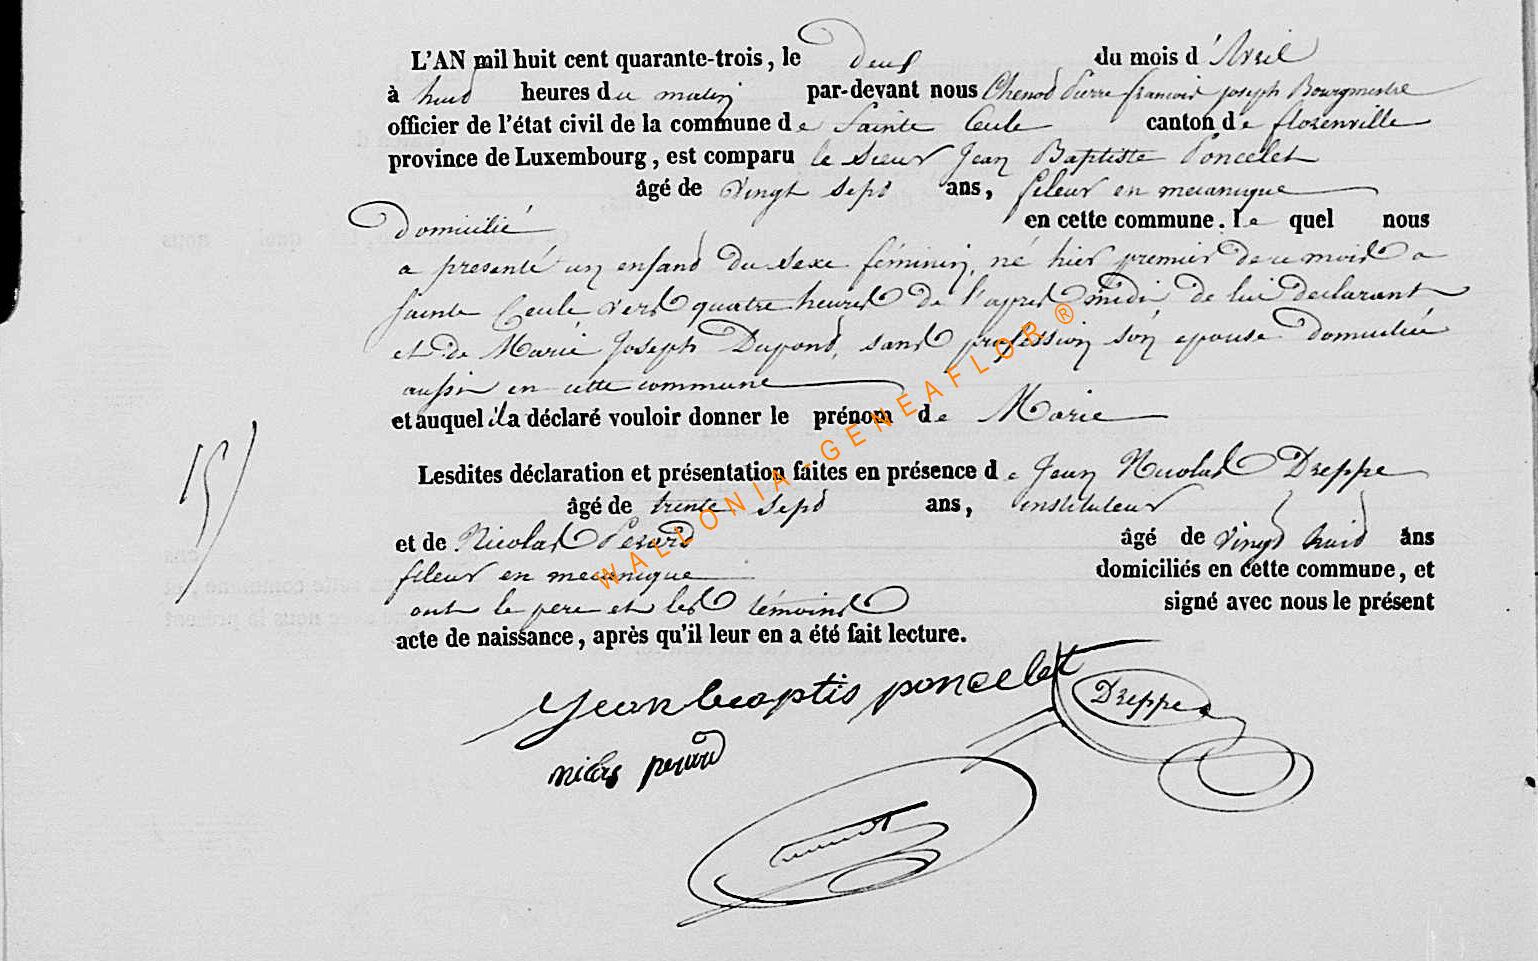 L'AN mil huit cent quarante-trois, le deux du mois d'Avril
à huit heures du matin par-devant nous Chenot Pierre françois joseph Bourgmestre
officier de l'état civil de la commune de Sainte Cecile canton de florenville
province de Luxembourg, est comparu le Sieur Jean Baptiste Poncelet
âgé de vingt sept ans, fileur en mecanique
Domicilié en cette commune. Le quel nous
a presenté un enfant du sexe féminin, né hier premier de ce mois a
Sainte Cecile vers quatre heures de l'apres midi de lui declarant
et de Marie Joseph Dupond, sans profession son epouse domiciliée
aussi en cette commune
et auquel il a déclaré vouloir donner le prénom de Marie
15
Lesdites déclaration et présentation faites en présence de Jean Nicolas Dreppe
âgé de trente sept ans, instituteur
et de Nicolas Perard âgé de vingt huit ans
fileur en mecanique domiciliés en cette commune, et
ont le pere et les témoins signé avec nous le présent
acte de naissance, après qu'il leur en a été fait lecture.
Jean baptis poncelet Dreppe
perard
WALLONIA-GENEAFLOR ®